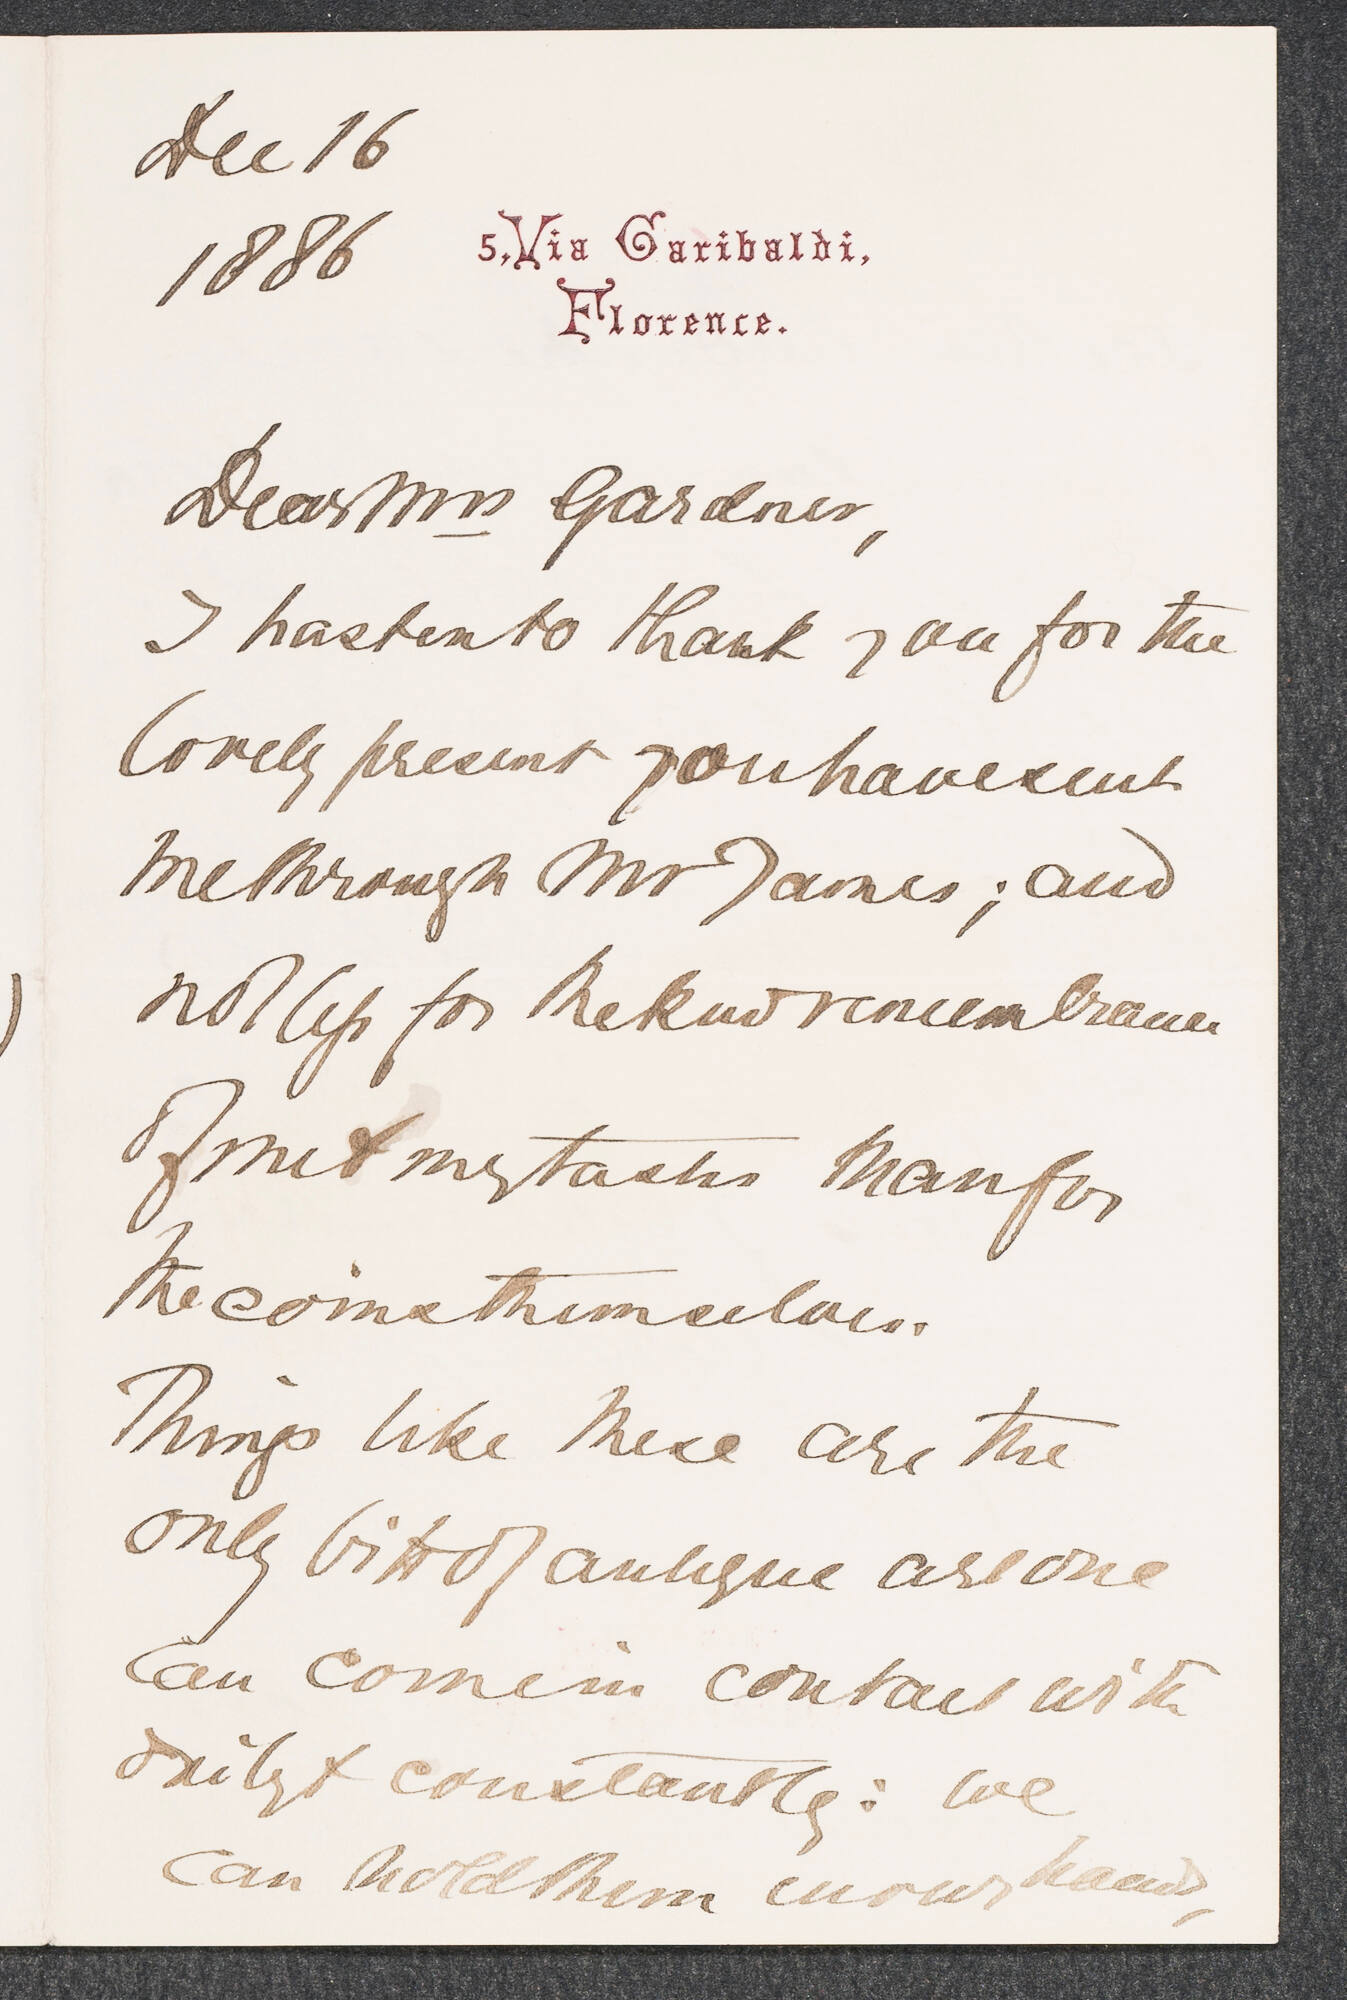 Dec 16
1886
5, Via Garibaldi,
Florence.
Dear Mrs Gardner,
I hasten to thank you for the
lovely present you have sent
me through Mr James; and
not less for the kind remembrance
of me & my tastes than for
the coins themselves.
Things like these are the
only bits of antique art one
can come in contact with
daily & constantly: we
can hold them in our hands,